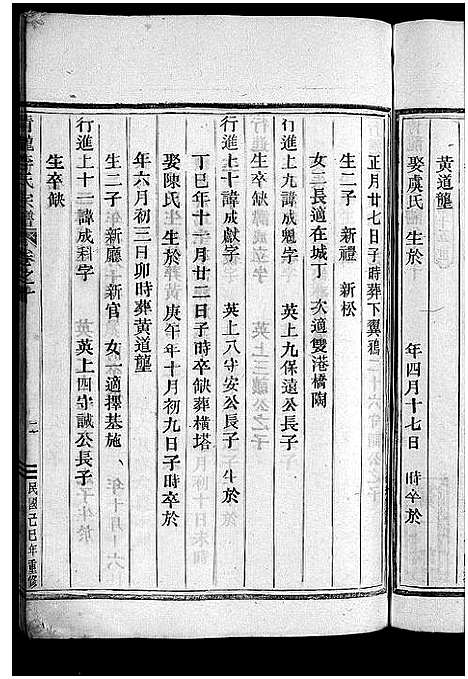 黃道壟
娶虞氏 生於 年四月十七日 時卒於
正月廿七日子時葬下翼鴉
生二子 新禮 新松
女三長適在城丁 次適雙港橋陶
行進上九諱成魁字 英上九保遠公長子
生卒缺
行進上十諱成獻字 英上八守安公長子 生於
丁巳年十一月廿二日子時卒缺葬橫塔
娶陳氏 生於 庚午年十月初九日子時卒於
年六月初三日卯時葬黃道壟
生二子 新廳 新官 女一適擇基施
行進上十一諱成 字 英上四守誠公長子
生卒缺
氏宗譜 卷之
民國己巳年重修